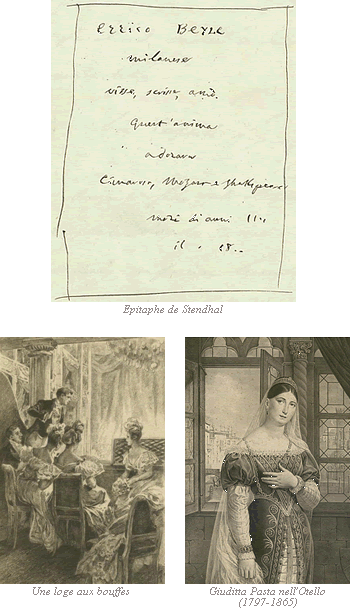 Errico Beyle
milanese
visse, scrisse, amò.
Quest'anima
adorava
Cimarosa, Mozart e Shakspeare
morì di anni
il . 18..
Epitaphe de Stendhal
Une loge aux bouffes
Giuditta Pasta nell'Otello
(1797-1865)